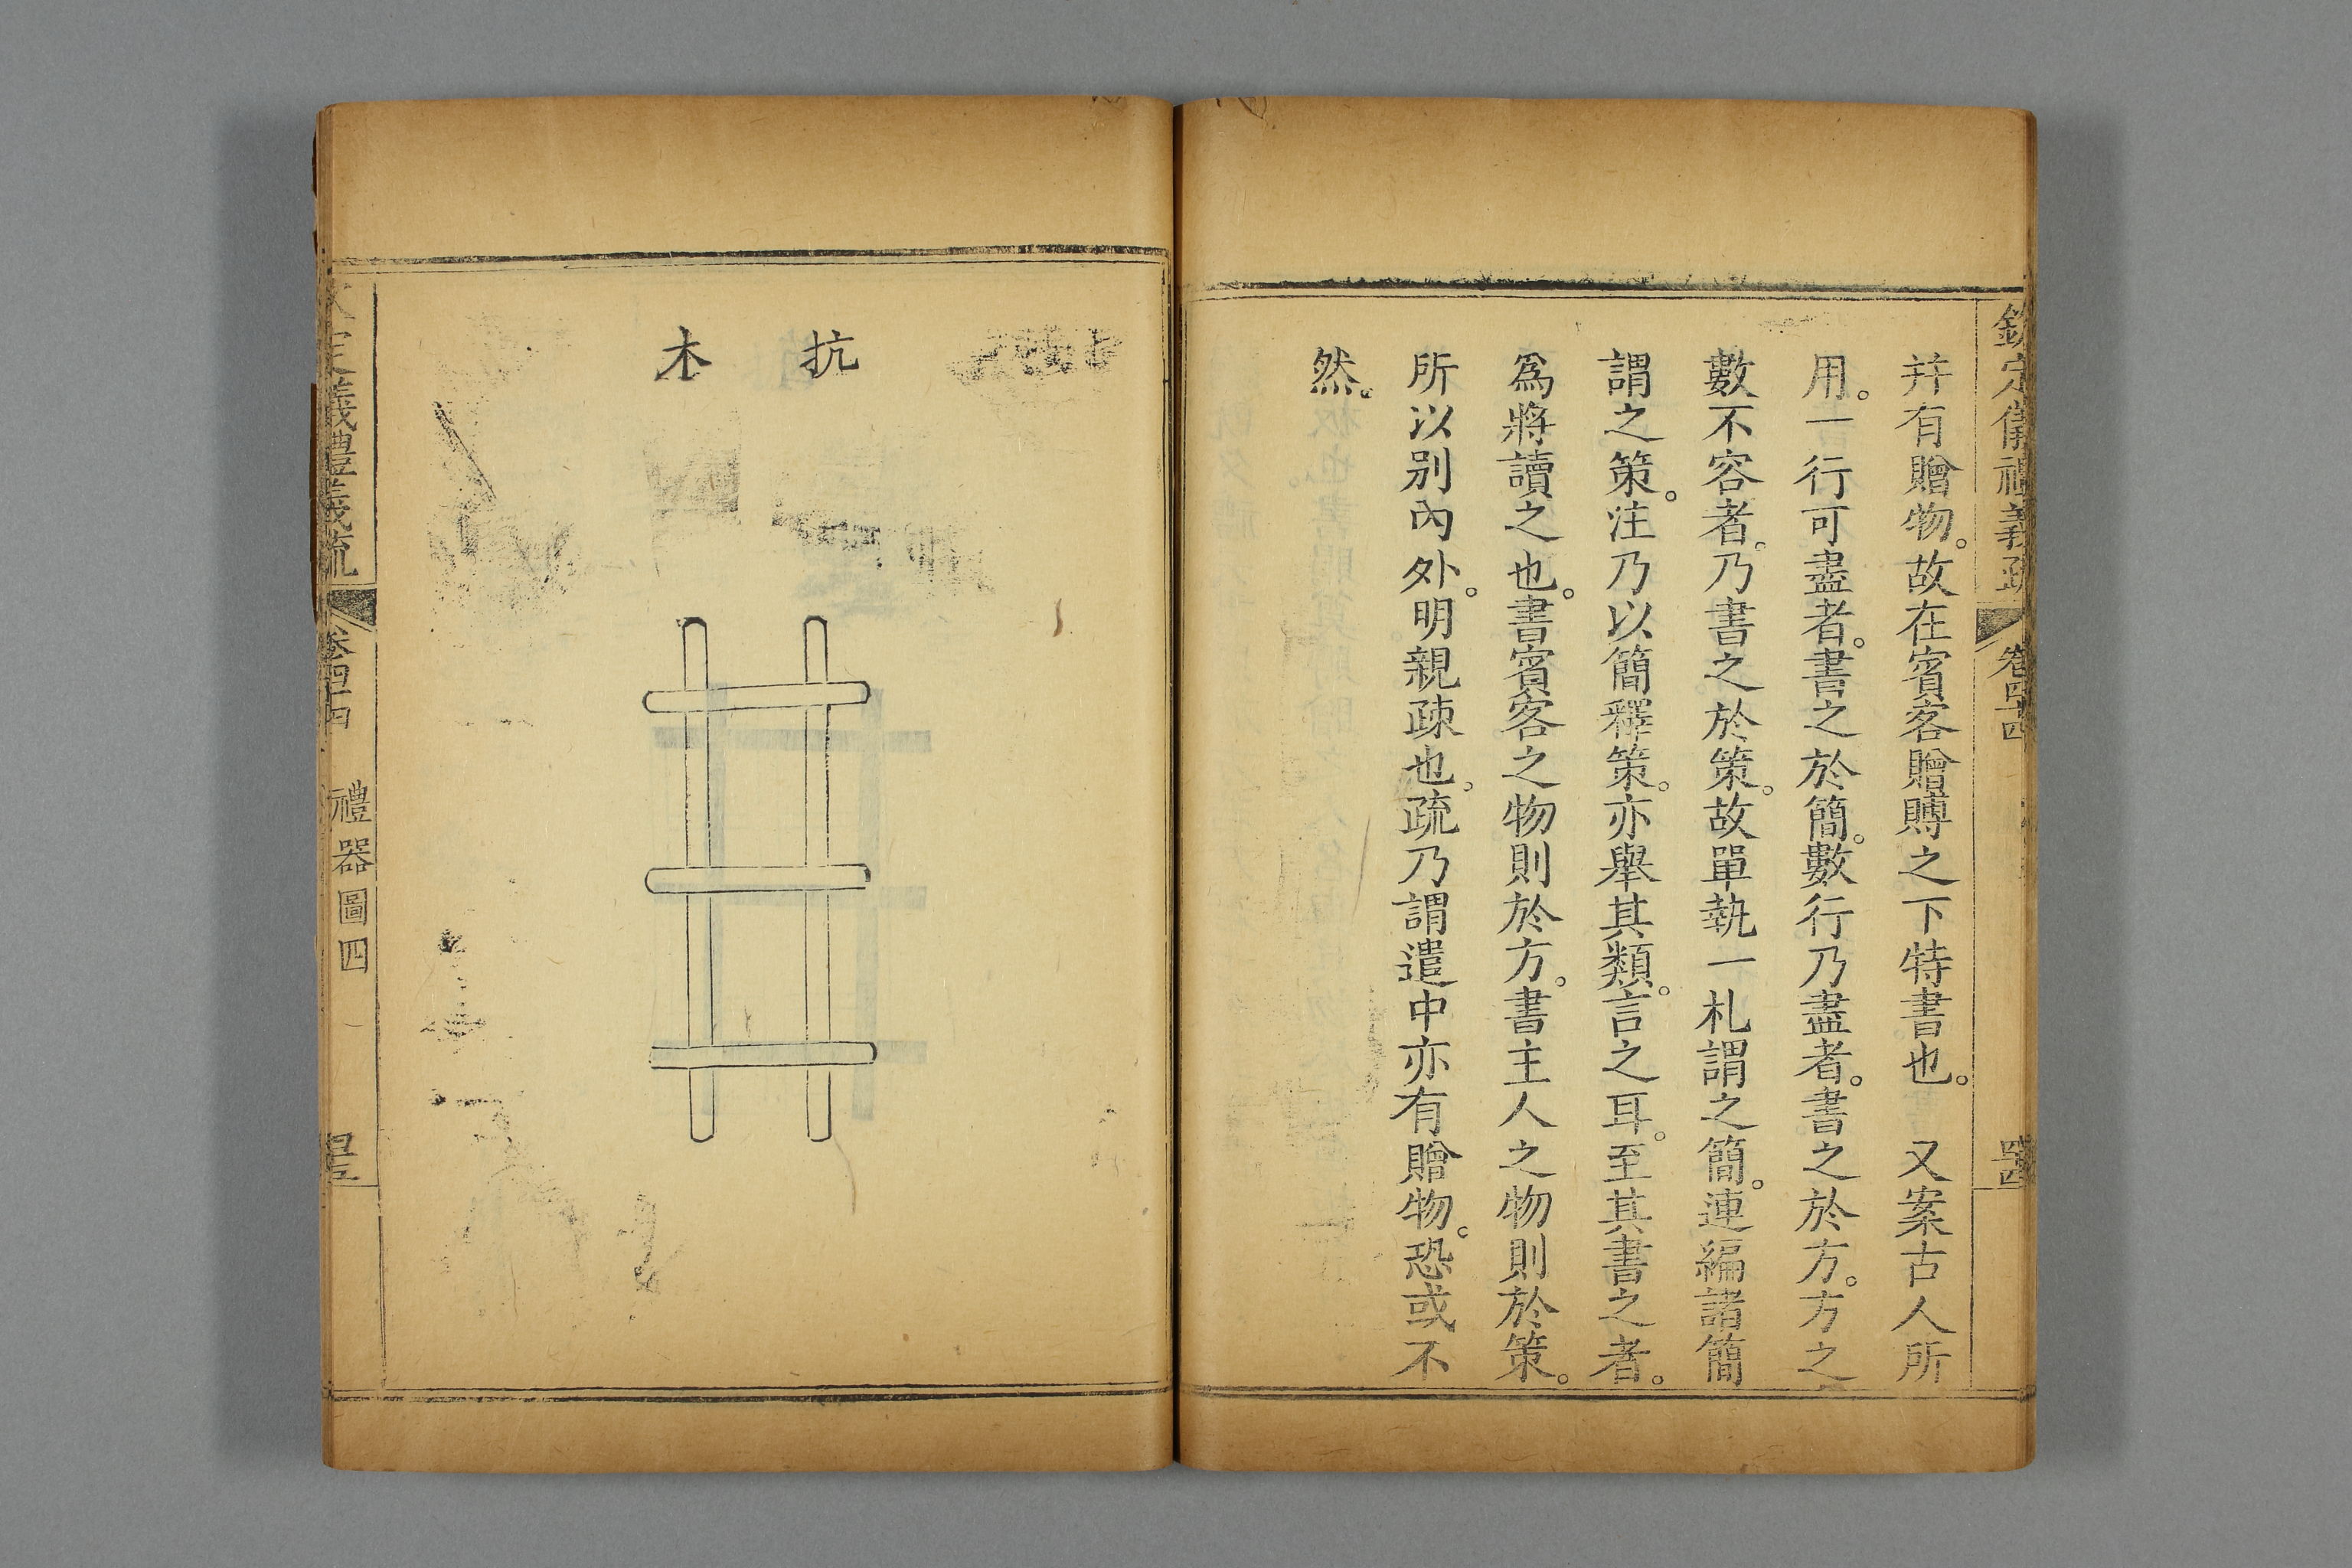 欽定儀禮義疏 卷四十四 四四
并有贈物。故在賓客贈賻之下特書也。 又案古人所
用。一行可盡者。書之於簡。數行乃盡者。書之於方。方之
數不容者。乃書之於策。故單執一札謂之簡。連編諸簡
謂之策。注乃以簡釋策。亦舉其類。言之耳。至其書之者。
爲將讀之也。書賓客之物則於方。書主人之物則於策。
所以别內外。明親疎也。疏乃謂遣中亦有贈物。恐或不
然。
抗木
定義禮義疏 卷四十四 禮器圖四